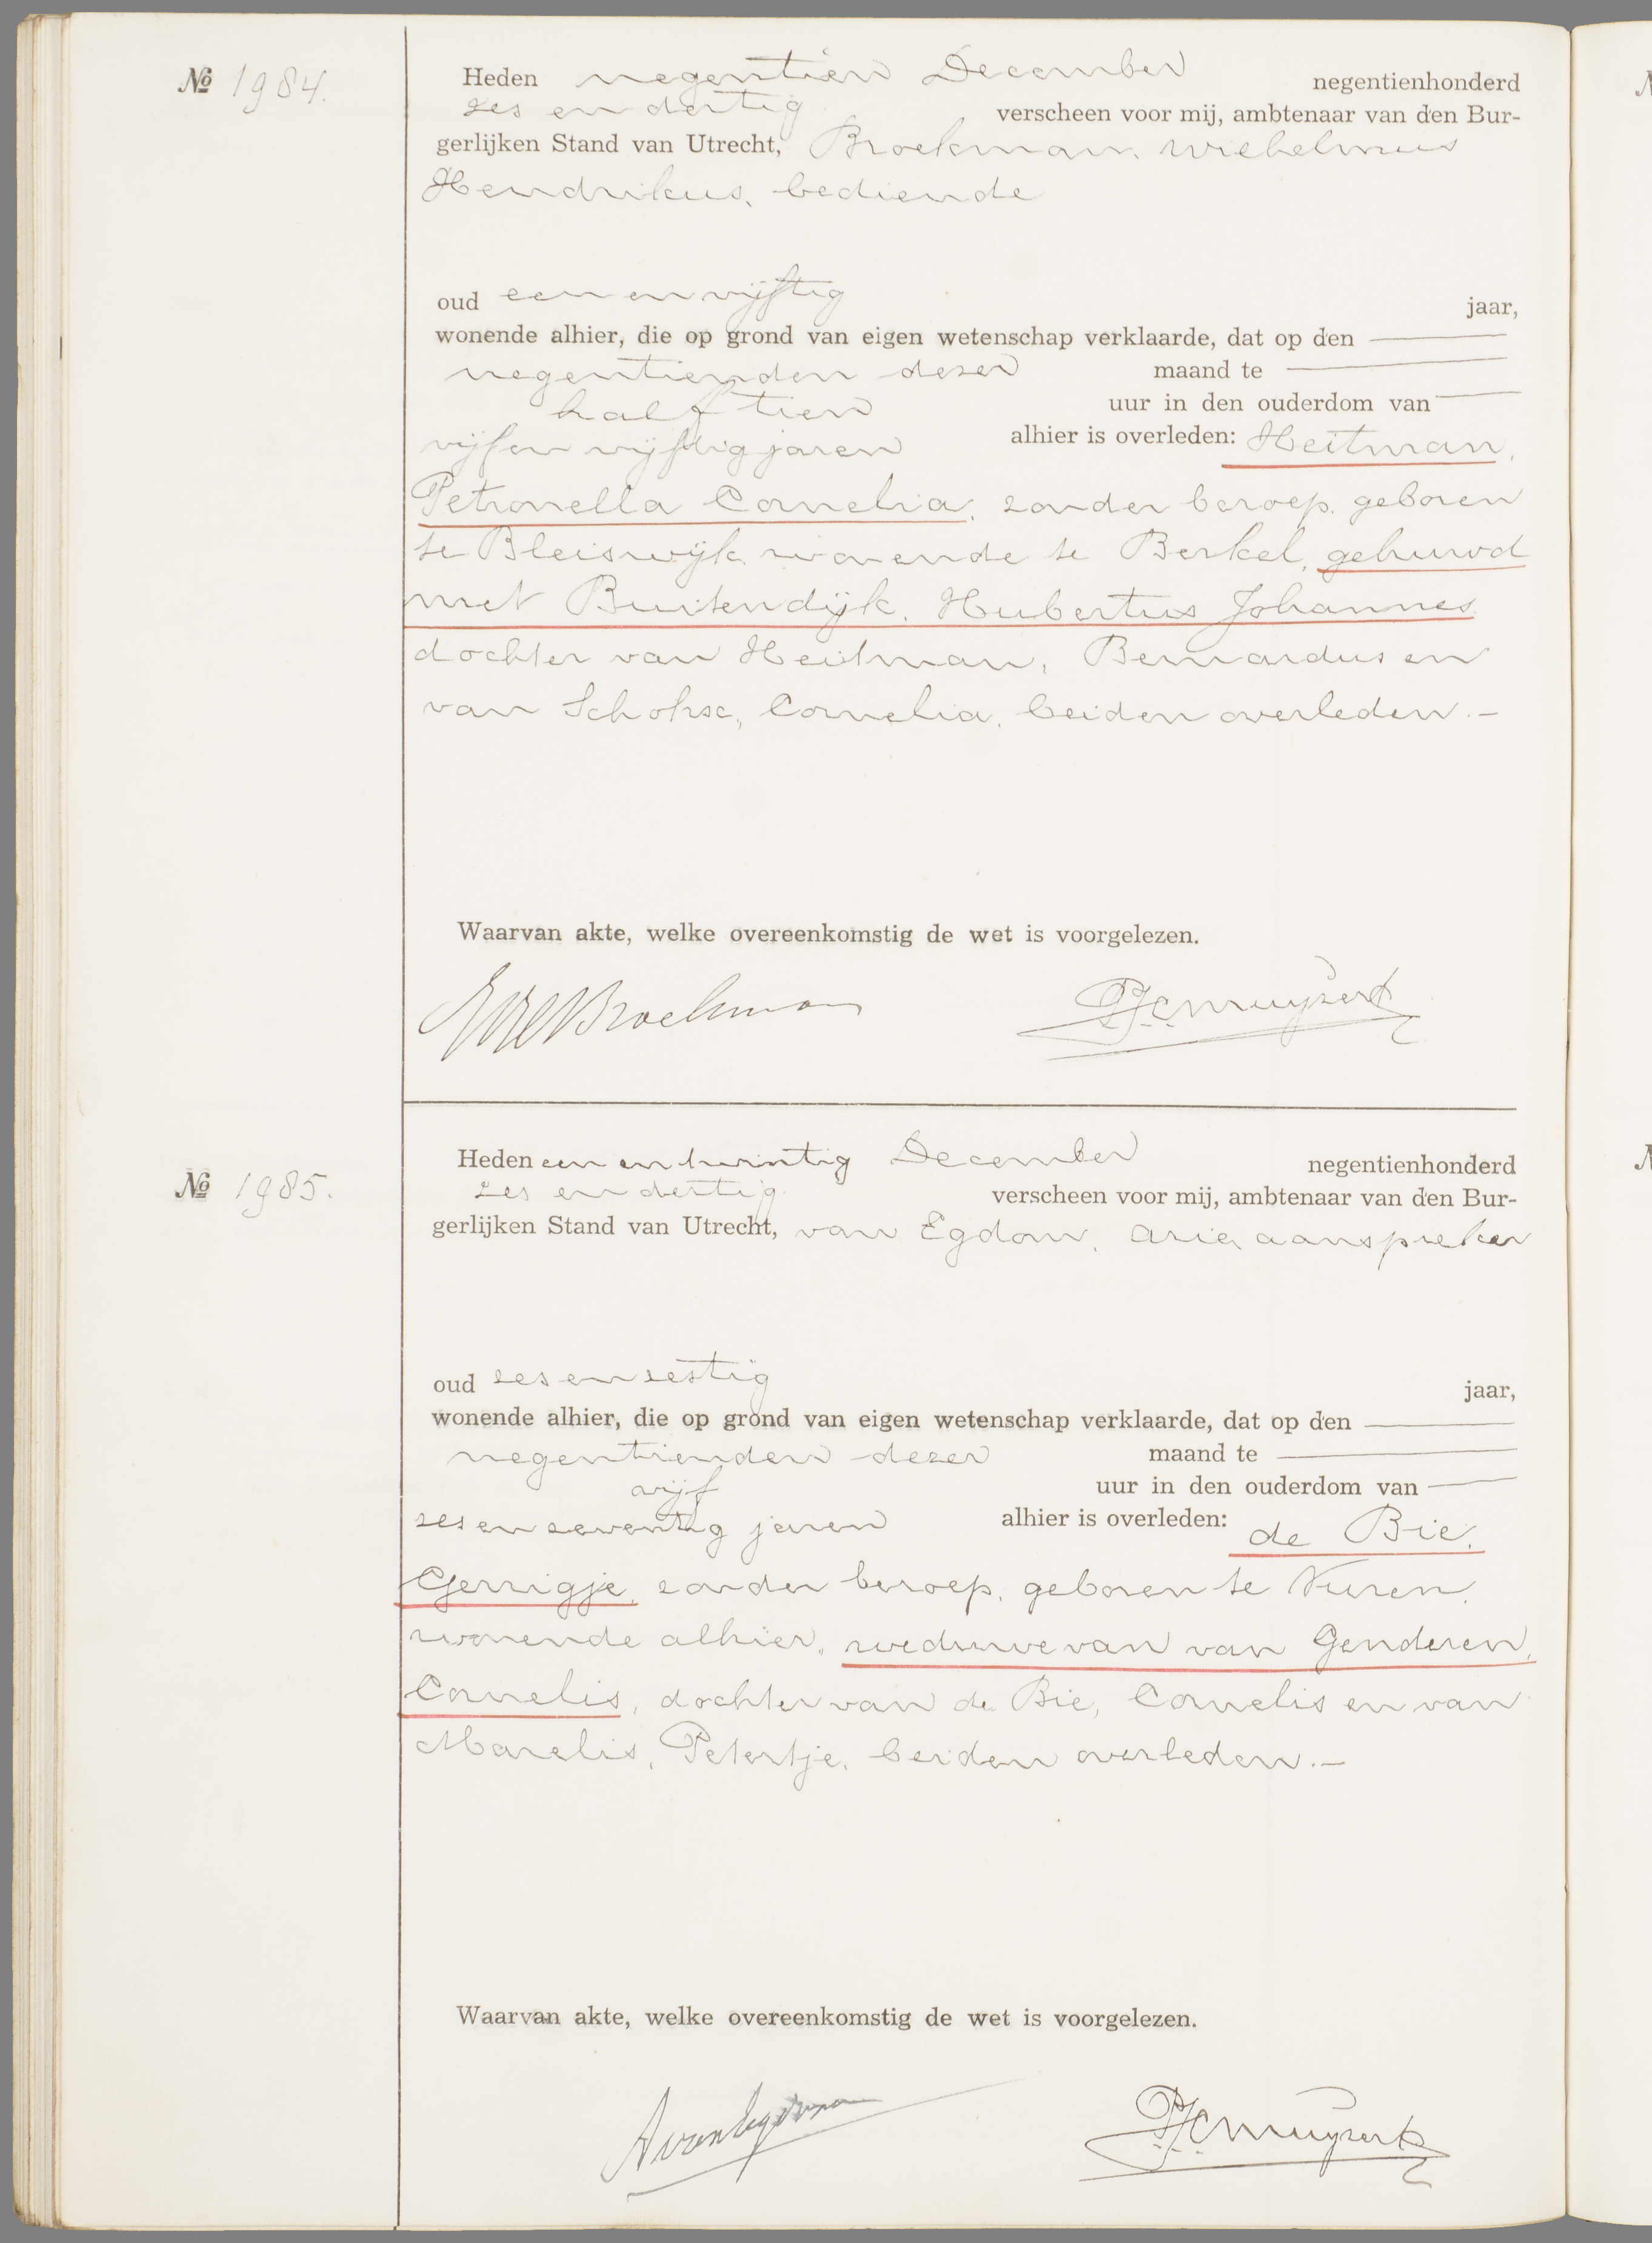 No 1984.
Heden negentien December negentienhonderd
zes en dertig verscheen voor mij, ambtenaar van den Bur-
gerlijken Stand van Utrecht, Broekman, Wilhelmus
Hendrikus, bediende
oud een en vijftig jaar,
wonende alhier, die op grond van eigen wetenschap verklaarde, dat op den
negentienden dezer maand te
half tien uur in den ouderdom van
vijf en vijftig jaren alhier is overleden: Heitman,
Petronella Cornelia, zonder beroep, geboren
te Bleiswijk, wonende te Berkel, gehuwd
met Buitendijk, Hubertus Johannes
dochter van Heitman, Bernardus en
van Cornelia, beiden overleden.-
Waarvan akte, welke overeenkomstig de wet is voorgelezen.
Broekman
No 1985.
Heden een en twintig December negentienhonderd
zes en dertig verscheen voor mij, ambtenaar van den Bur-
gerlijken Stand van Utrecht, van Egdom, Arie, aanspreker
oud zes en zestig jaar,
wonende alhier, die op grond van eigen wetenschap verklaarde, dat op den
negentienden dezer maand te
vijf uur in den ouderdom van
zes en zeventig jaren alhier is overleden: de Bie,
Gerrigje, zonder beroep, geboren te Vuren,
wonende alhier, weduwe van van Genderen,
Cornelis, dochter van de Bie, Cornelis en van
Marelis, Petertje, beiden overleden.-
Waarvan akte, welke overeenkomstig de wet is voorgelezen.
A van Egdom